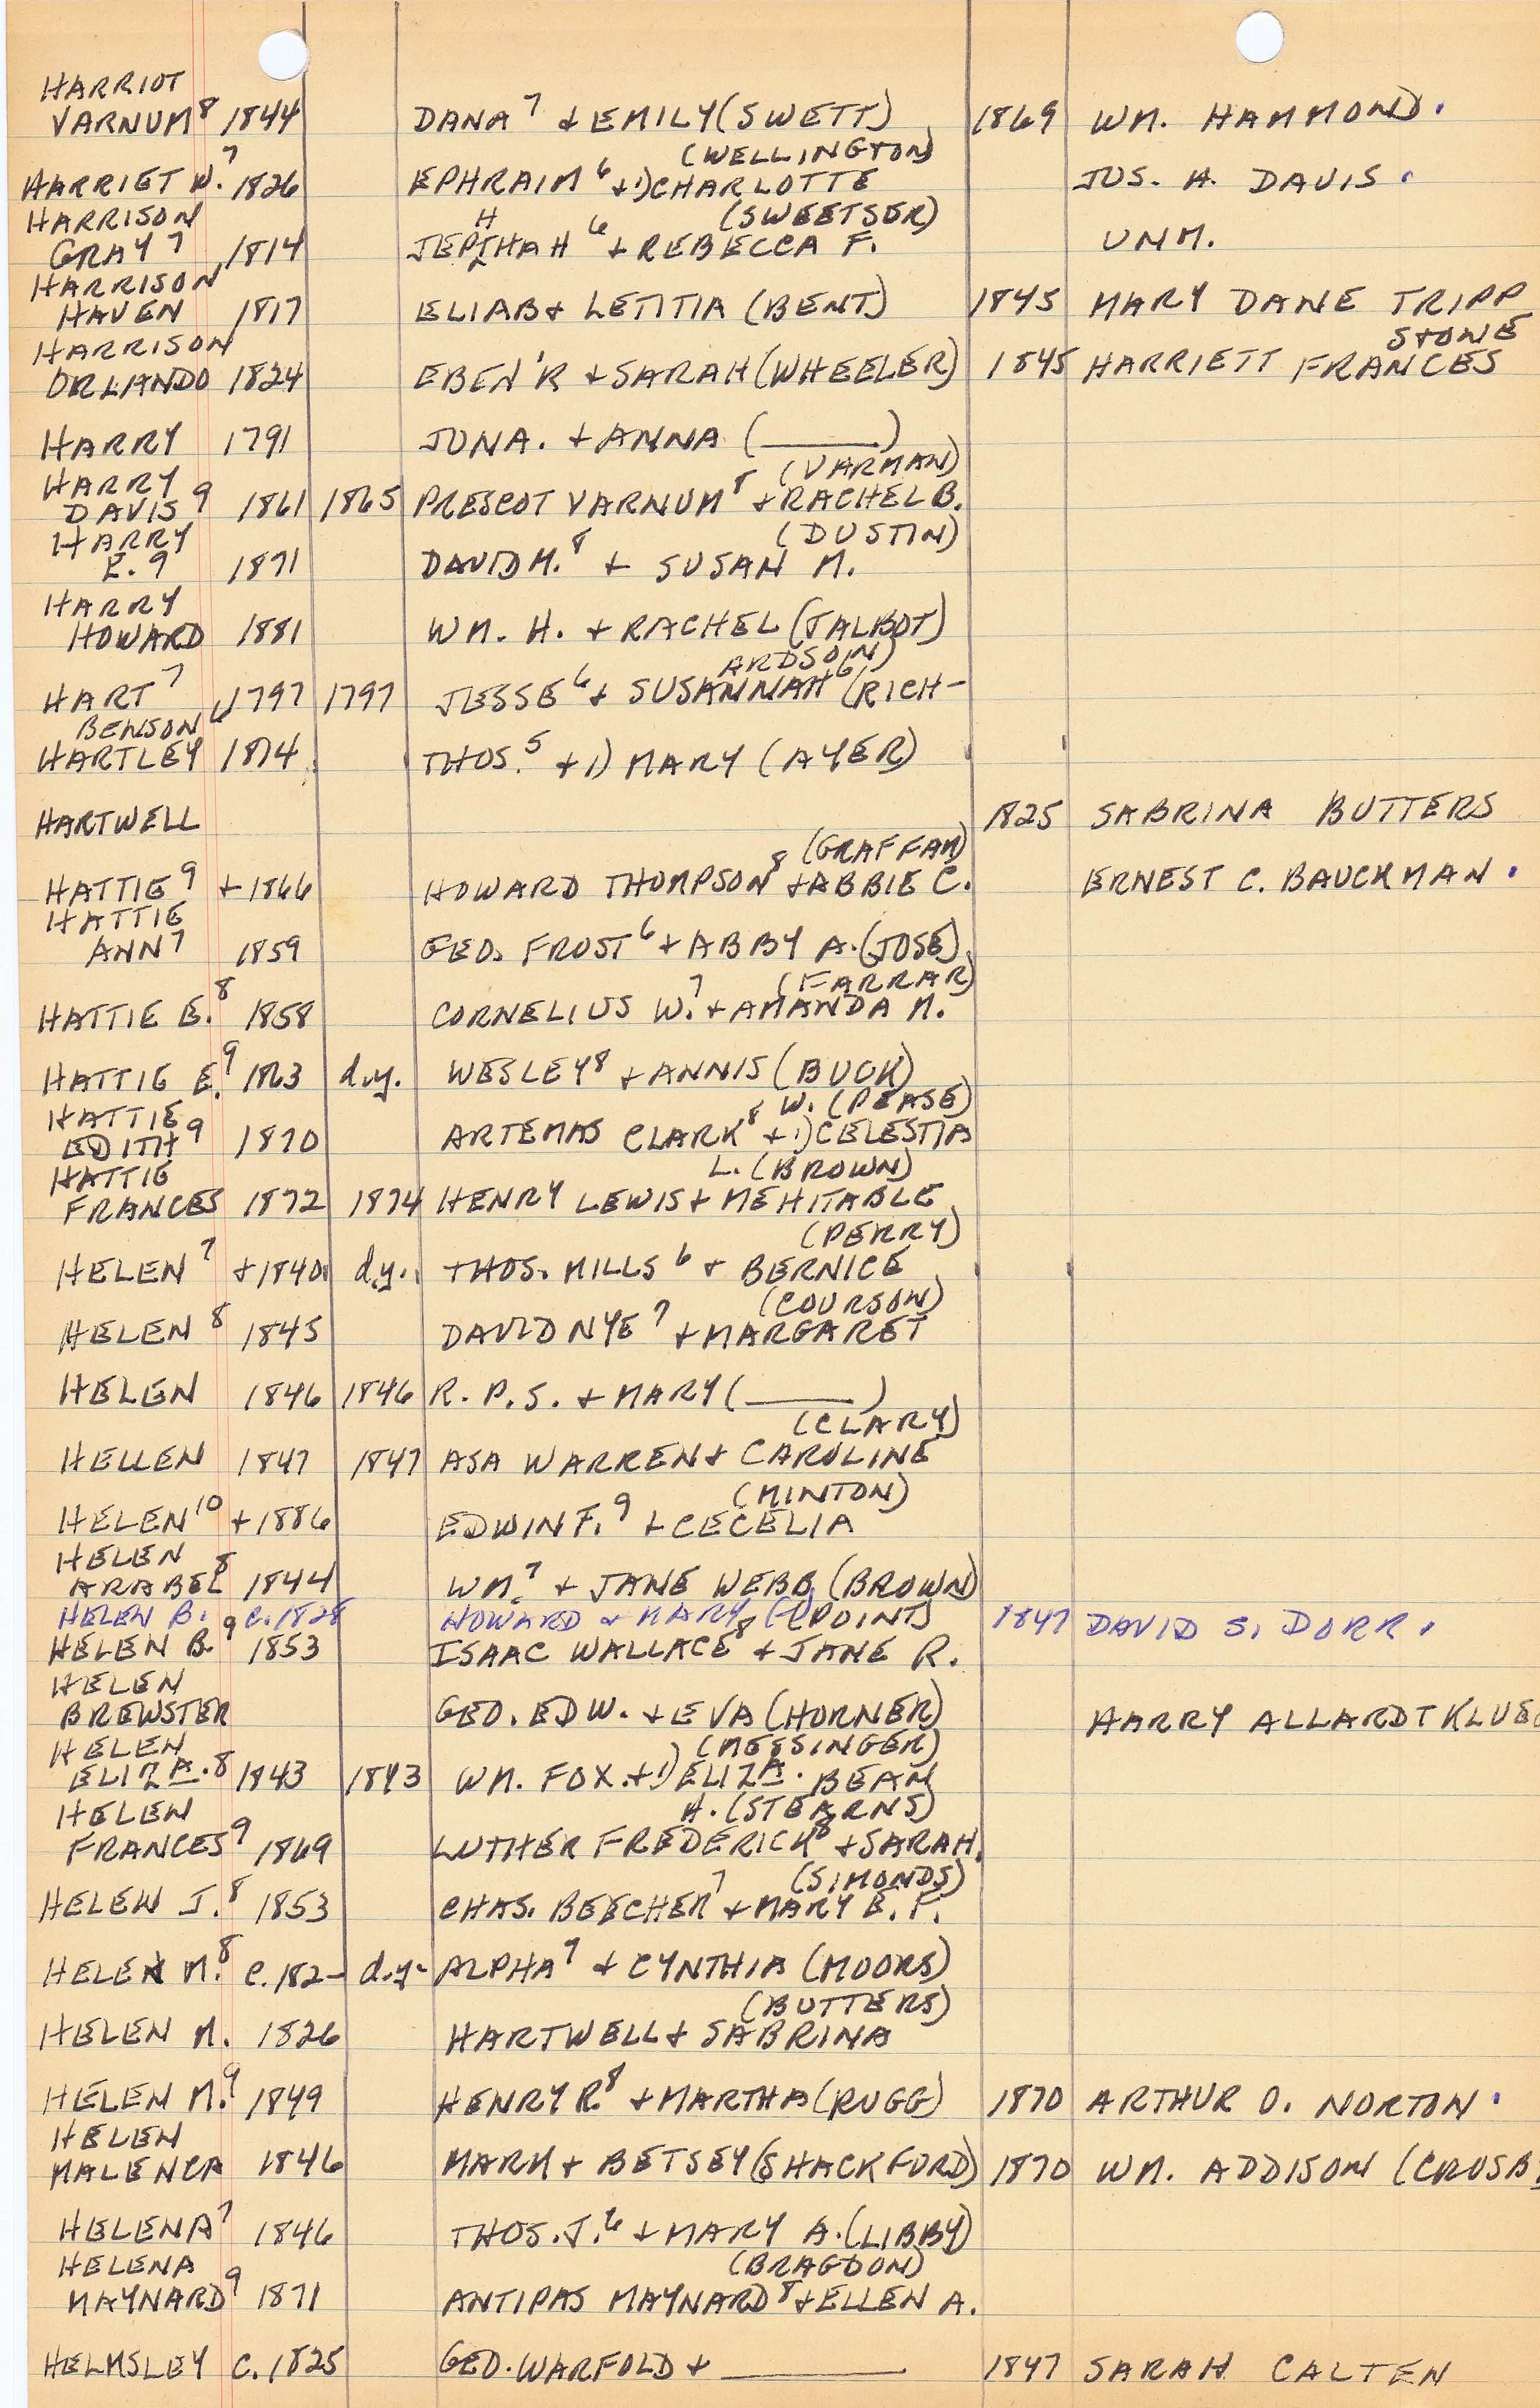 HARRIOT
VARNUM⁸ 1844 DANA⁷ + EMILY (SWETT) 1869 WM. HAMMOND.
(WELLINGTON)
HARRIET W.⁷ 1826 EPHRAIM⁶ +1) CHARLOTTE JOS. A. DAVIS.
HARRISON H (SWEETSER)
GRAY⁷ 1814 JEPTHAH⁶ + REBECCA F. UNM.
HARRISON
HAVEN 1817 ELIAB + LETITIA (BENT) 1845 MARY DANE TRIPP
HARRISON STONE
ORLANDO 1824 EBEN'R + SARAH (WHEELER) 1845 HARRIETT FRANCES
HARRY 1791 JONA. + ANNA (______)
HARRY (VARMAN)
DAVIS⁹ 1861 1865 PRESCOT VARNUM⁸ + RACHEL B.
HARRY (DUSTIN)
E.⁹ 1871 DAVID M.⁸ + SUSAN M.
HARRY
HOWARD 1881 WM. H. + RACHEL (TALBOT)
ARDSON)
HART⁷ 1797 1797 JESSE⁶ + SUSANNAH⁶ (RICH-
BENSON
HARTLEY⁶ 1814 THOS.⁵ +1) MARY (AYER)
HARTWELL 1825 SABRINA BUTTERS
(GRAFFAM)
HATTIE⁹ +1866 HOWARD THOMPSON⁸ + ABBIE C. ERNEST C. BAUCKMAN.
HATTIE
ANN⁷ 1859 GEO. FROST⁶ + ABBY A. (JOSE)
(FARRAR)
HATTIE E.⁸ 1858 CORNELIUS W.⁷ + AMANDA M.
HATTIE E.⁹ 1863 d.y. WESLEY⁸ + ANNIS (BUCK)
HATTIE W. (PEASE)
EDITH⁹ 1870 ARTEMAS CLARK⁸ +1) CELESTIA
HATTIE L. (BROWN)
FRANCES 1872 1874 HENRY LEWIS + MEHITABLE
(PERRY)
HELEN⁷ +1840 d.y. THOS. MILLS⁶ + BERNICE
(COURSON)
HELEN⁸ 1845 DAVID NYE⁷ + MARGARET
HELEN 1846 1846 R. P. S. + MARY (______)
(CLARY)
HELLEN 1847 1847 ASA WARREN + CAROLINE
(MINTON)
HELEN¹⁰ +1886 EDWIN F.⁹ + CECELIA
HELEN
ARABEL⁸ 1844 WM.⁷ + JANE WEBB (BROWN)
HELEN B. c. 1828 HOWARD + MARY 1847 DAVID S. DORR.
HELEN B.⁹ 1853 ISAAC WALLACE⁸ + JANE R. (POINT)
HELEN
BREWSTER GEO. EDW. + EVA (HORNER) HARRY ALLARDT
HELEN (MESSINGER)
ELIZA.⁸ 1843 1843 WM. FOX. +1) ELIZA. BEAM
HELEN H. (STEARNS)
FRANCES⁹ 1869 LUTHER FREDERICK⁸ + SARAH
(SIMONDS)
HELEN J.⁸ 1853 CHAS. BEECHER⁷ + MARY E. P.
HELEN M.⁸ c. 182- d.y. ALPHA⁷ + CYNTHIA (MOORS)
(BUTTERS)
HELEN M. 1826 HARTWELL + SABRINA
HELEN M.⁹ 1849 HENRY R.⁸ + MARTHA (RUGG) 1870 ARTHUR O. NORTON.
HELEN
MALENCA 1846 MARK + BETSEY (SHACKFORD) 1870 WM. ADDISON (CROSB
HELENA⁷ 1846 THOS. J.⁶ + MARY A. (LIBBY)
HELENA (BRAGDON)
MAYNARD⁹ 1871 ANTIPAS MAYNARD⁸ + ELLEN A.
HELMSLEY c. 1825 GEO. WARFOLD + ______ 1847 SARAH CALTEN